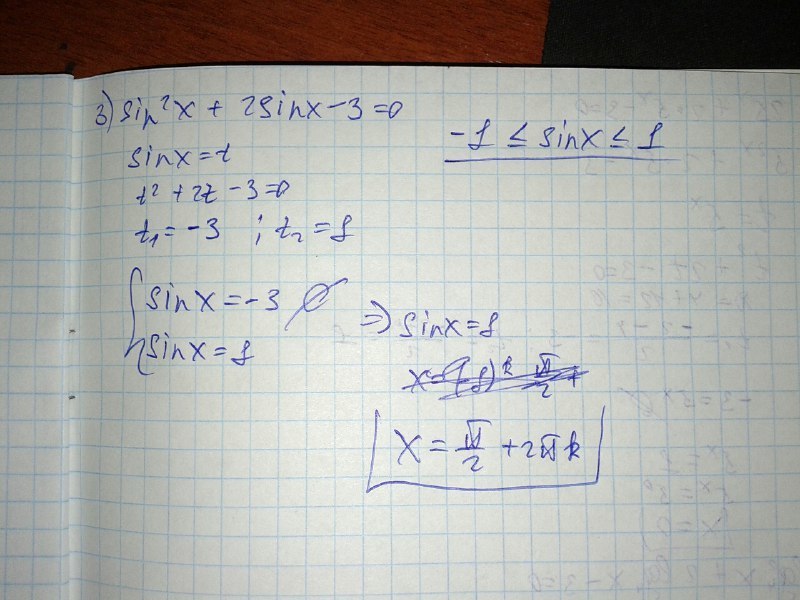 3) sin²x + 2sinx - 3 = 0
-1 ≤ sinx ≤ 1
sinx = t
t² + 2t - 3 = 0
t₁ = -3 ; t₂ = 1
sinx = -3 ∅
sinx = 1
⇒ sinx = 1
x = π/2 + 2πk